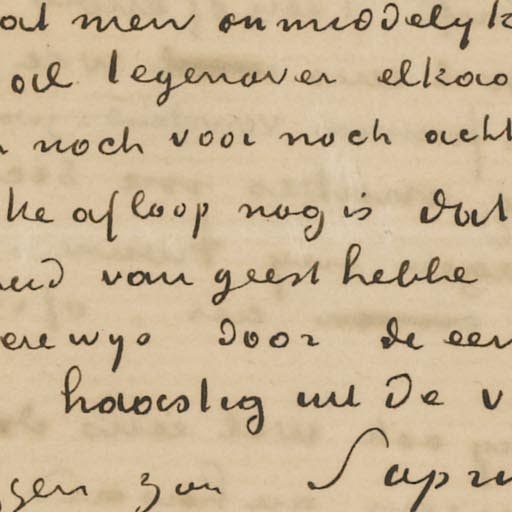 at men onmiddelyk
ook tegenover elkaa
n noch voor noch acht
ke afloop nog is dat
heid van geest hebbe
erewys door de een
haastig uit de v
gen zou Supr